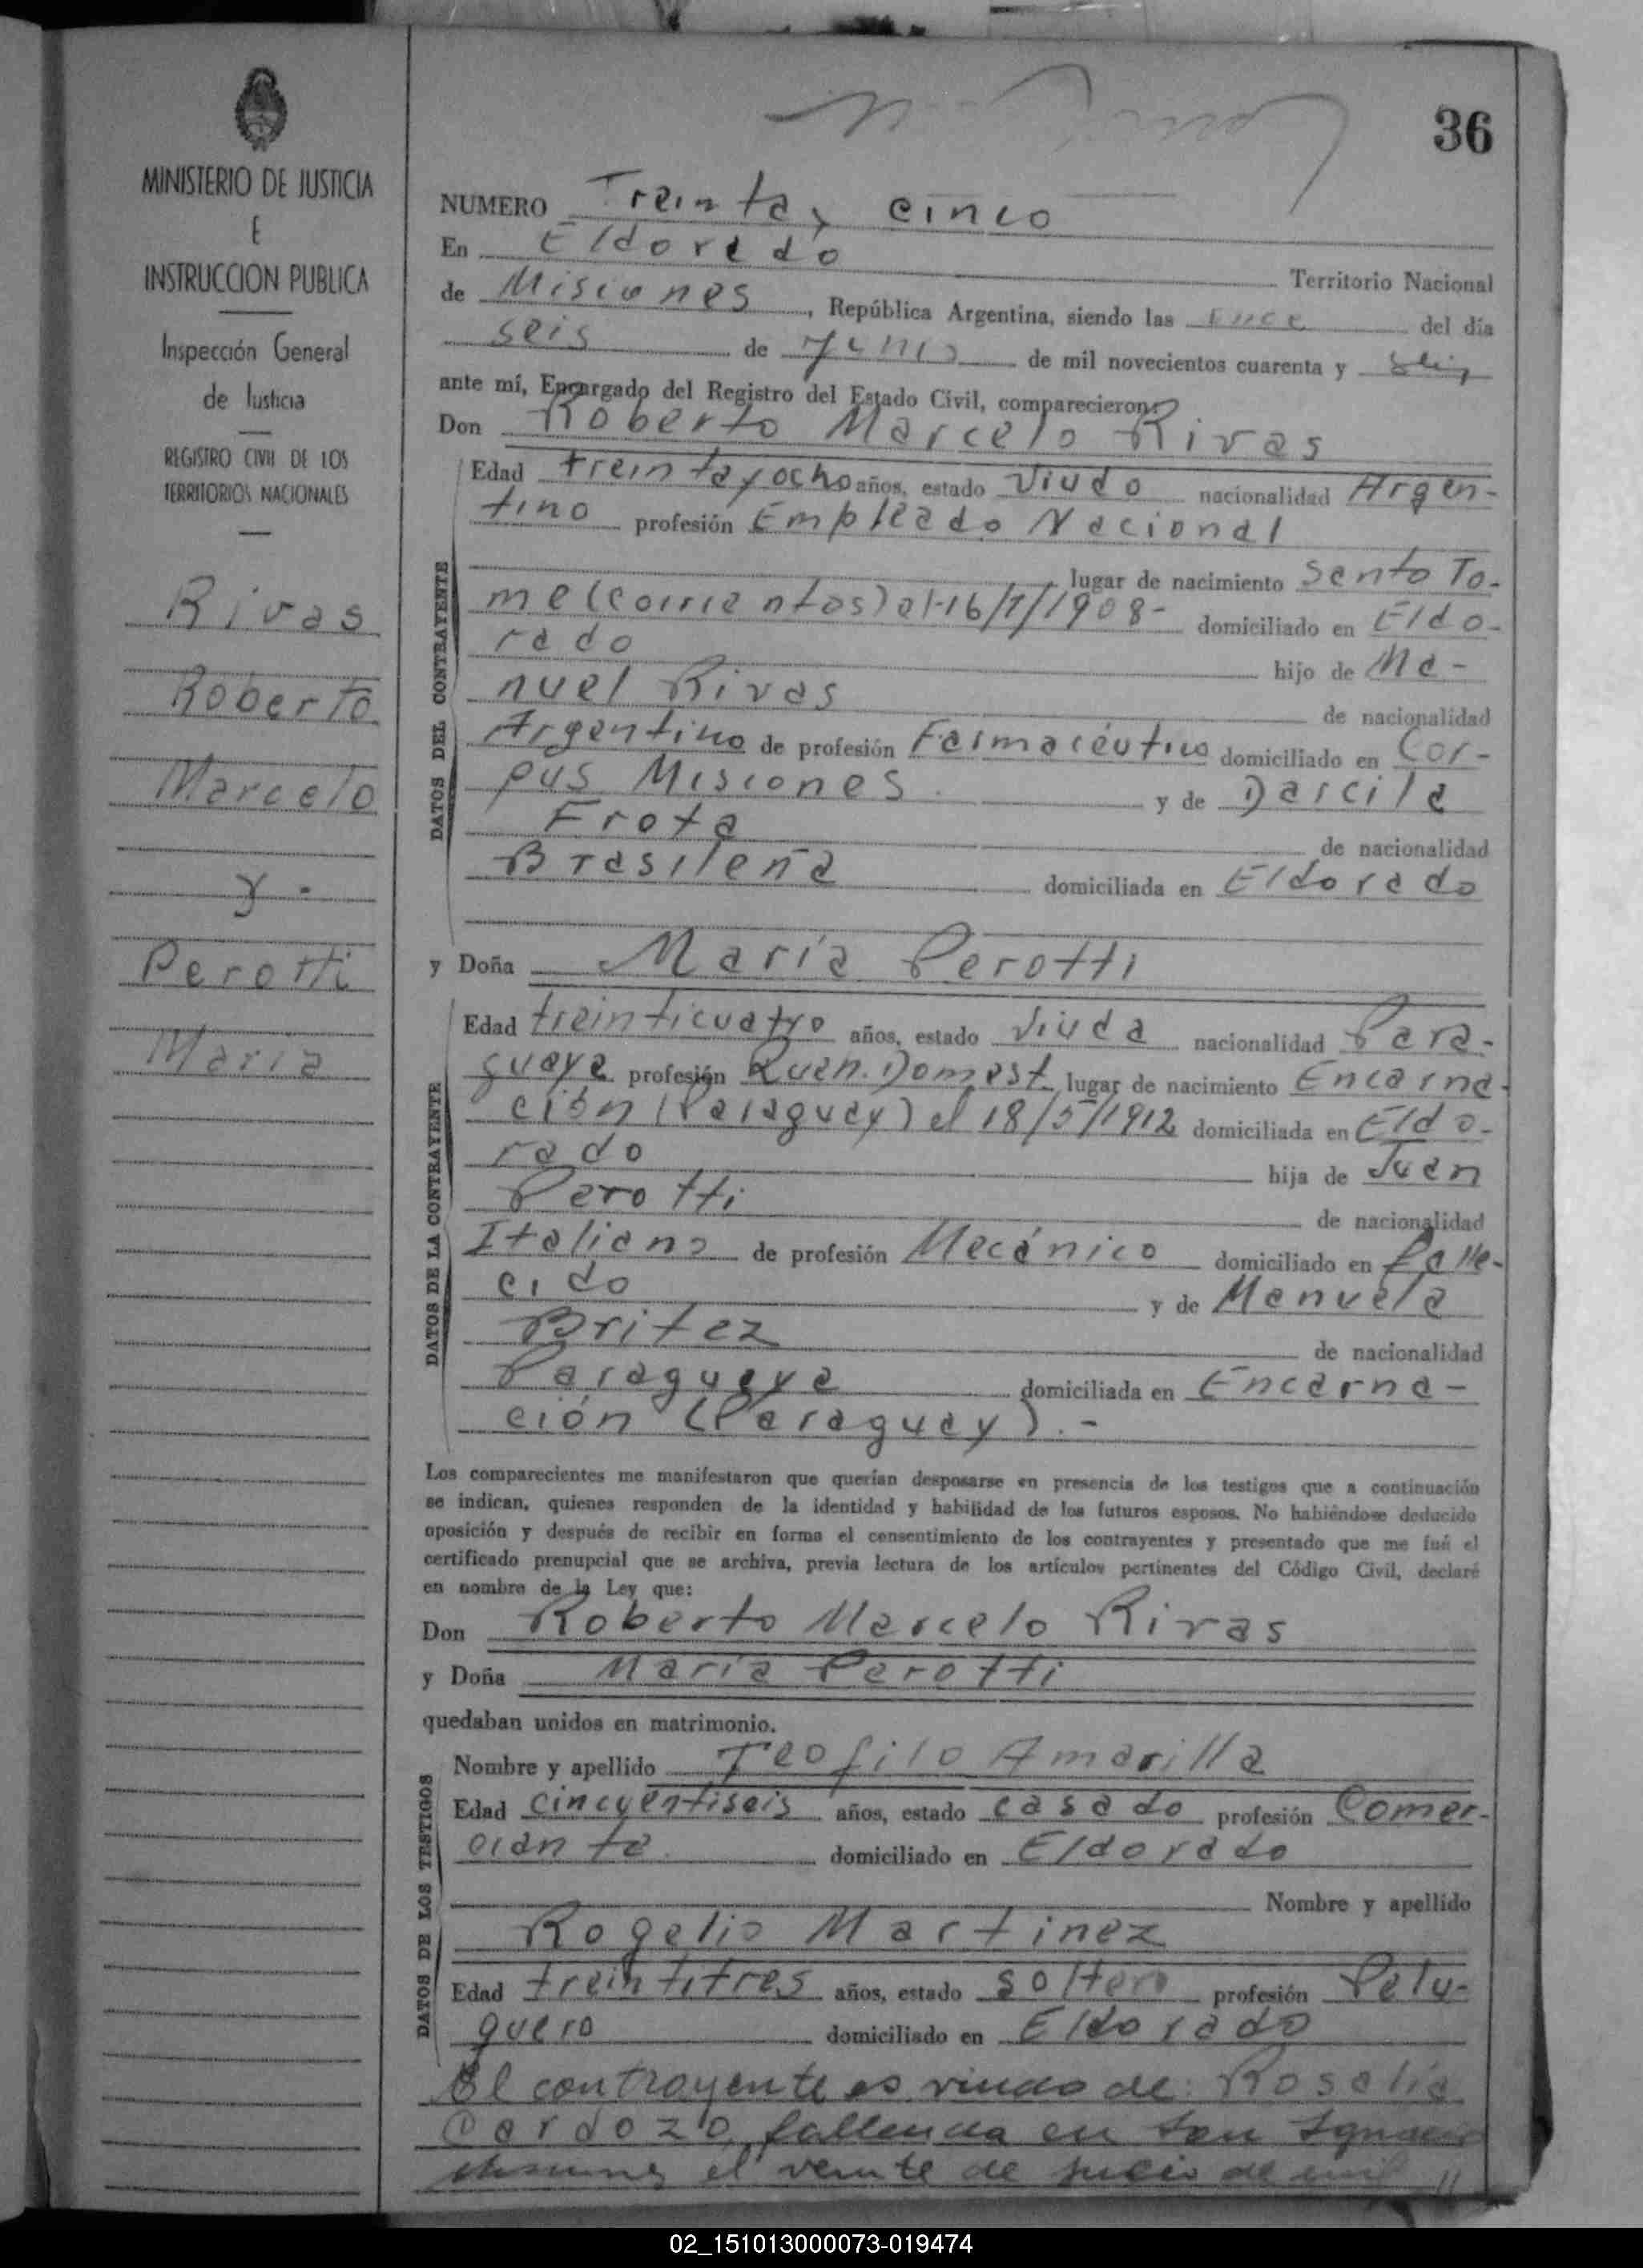 36
MINISTERIO DE JUSTICIA
E
INSTRUCCION PUBLICA
Inspección General
de Justicia
REGISTRO CIVIL DE LOS
TERRITORIOS NACIONALES
Rivas
Roberto
Marcelo
y -
Perotti
María
NUMERO Treinta y cinco
En Eldorado
Territorio Nacional
de Misiones, República Argentina, siendo las once del día
seis de Junio de mil novecientos cuarenta y seis
ante mí, Encargado del Registro del Estado Civil, comparecieron:
Don Roberto Marcelo Rivas
DATOS DEL CONTRAYENTE
Edad treinta y ocho años, estado Viudo nacionalidad Argen-
tino profesión Empleado Nacional
lugar de nacimiento Santo To-
me (Corrientes) el-16/1/1908- domiciliado en Eldo-
rado hijo de Ma-
nuel Rivas de nacionalidad
Argentino de profesión Farmacéutico domiciliado en Cor-
pus Misiones y de Darcila
Frota de nacionalidad
Brasileña domiciliada en Eldorado
y Doña María Perotti
DATOS DE LA CONTRAYENTE
Edad treinticuatro años, estado Viuda nacionalidad Para-
guaya profesión Queh. Domest. lugar de nacimiento Encarna-
ción (Paraguay) el 18/5/1912 domiciliada en Eldo-
rado hija de Juan
Perotti de nacionalidad
Italiano de profesión Mecánico domiciliado en Falle-
cido y de Manuela
Britez de nacionalidad
Paraguaya domiciliada en Encarna-
ción (Paraguay).-
Los comparecientes me manifestaron que querían desposarse en presencia de los testigos que a continuación
se indican, quienes responden de la identidad y habilidad de los futuros esposos. No habiéndose deducido
oposición y después de recibir en forma el consentimiento de los contrayentes y presentado que me fué el
certificado prenupcial que se archiva, previa lectura de los artículos pertinentes del Código Civil, declaré
en nombre de la Ley que:
Don Roberto Marcelo Rivas
y Doña María Perotti
quedaban unidos en matrimonio.
DATOS DE LOS TESTIGOS
Nombre y apellido Teofilo Amarilla
Edad cincuentiseis años, estado casado profesión Comer-
ciante domiciliado en Eldorado
Nombre y apellido
Rogelio Martinez
Edad treintitres años, estado soltero profesión Pelu-
quero domiciliado en Eldorado
El contrayente es viudo de: Rosalía
Cardozo, fallecida en San Ignacio
Misiones el veinte de julio de mil //
02_151013000073-019474